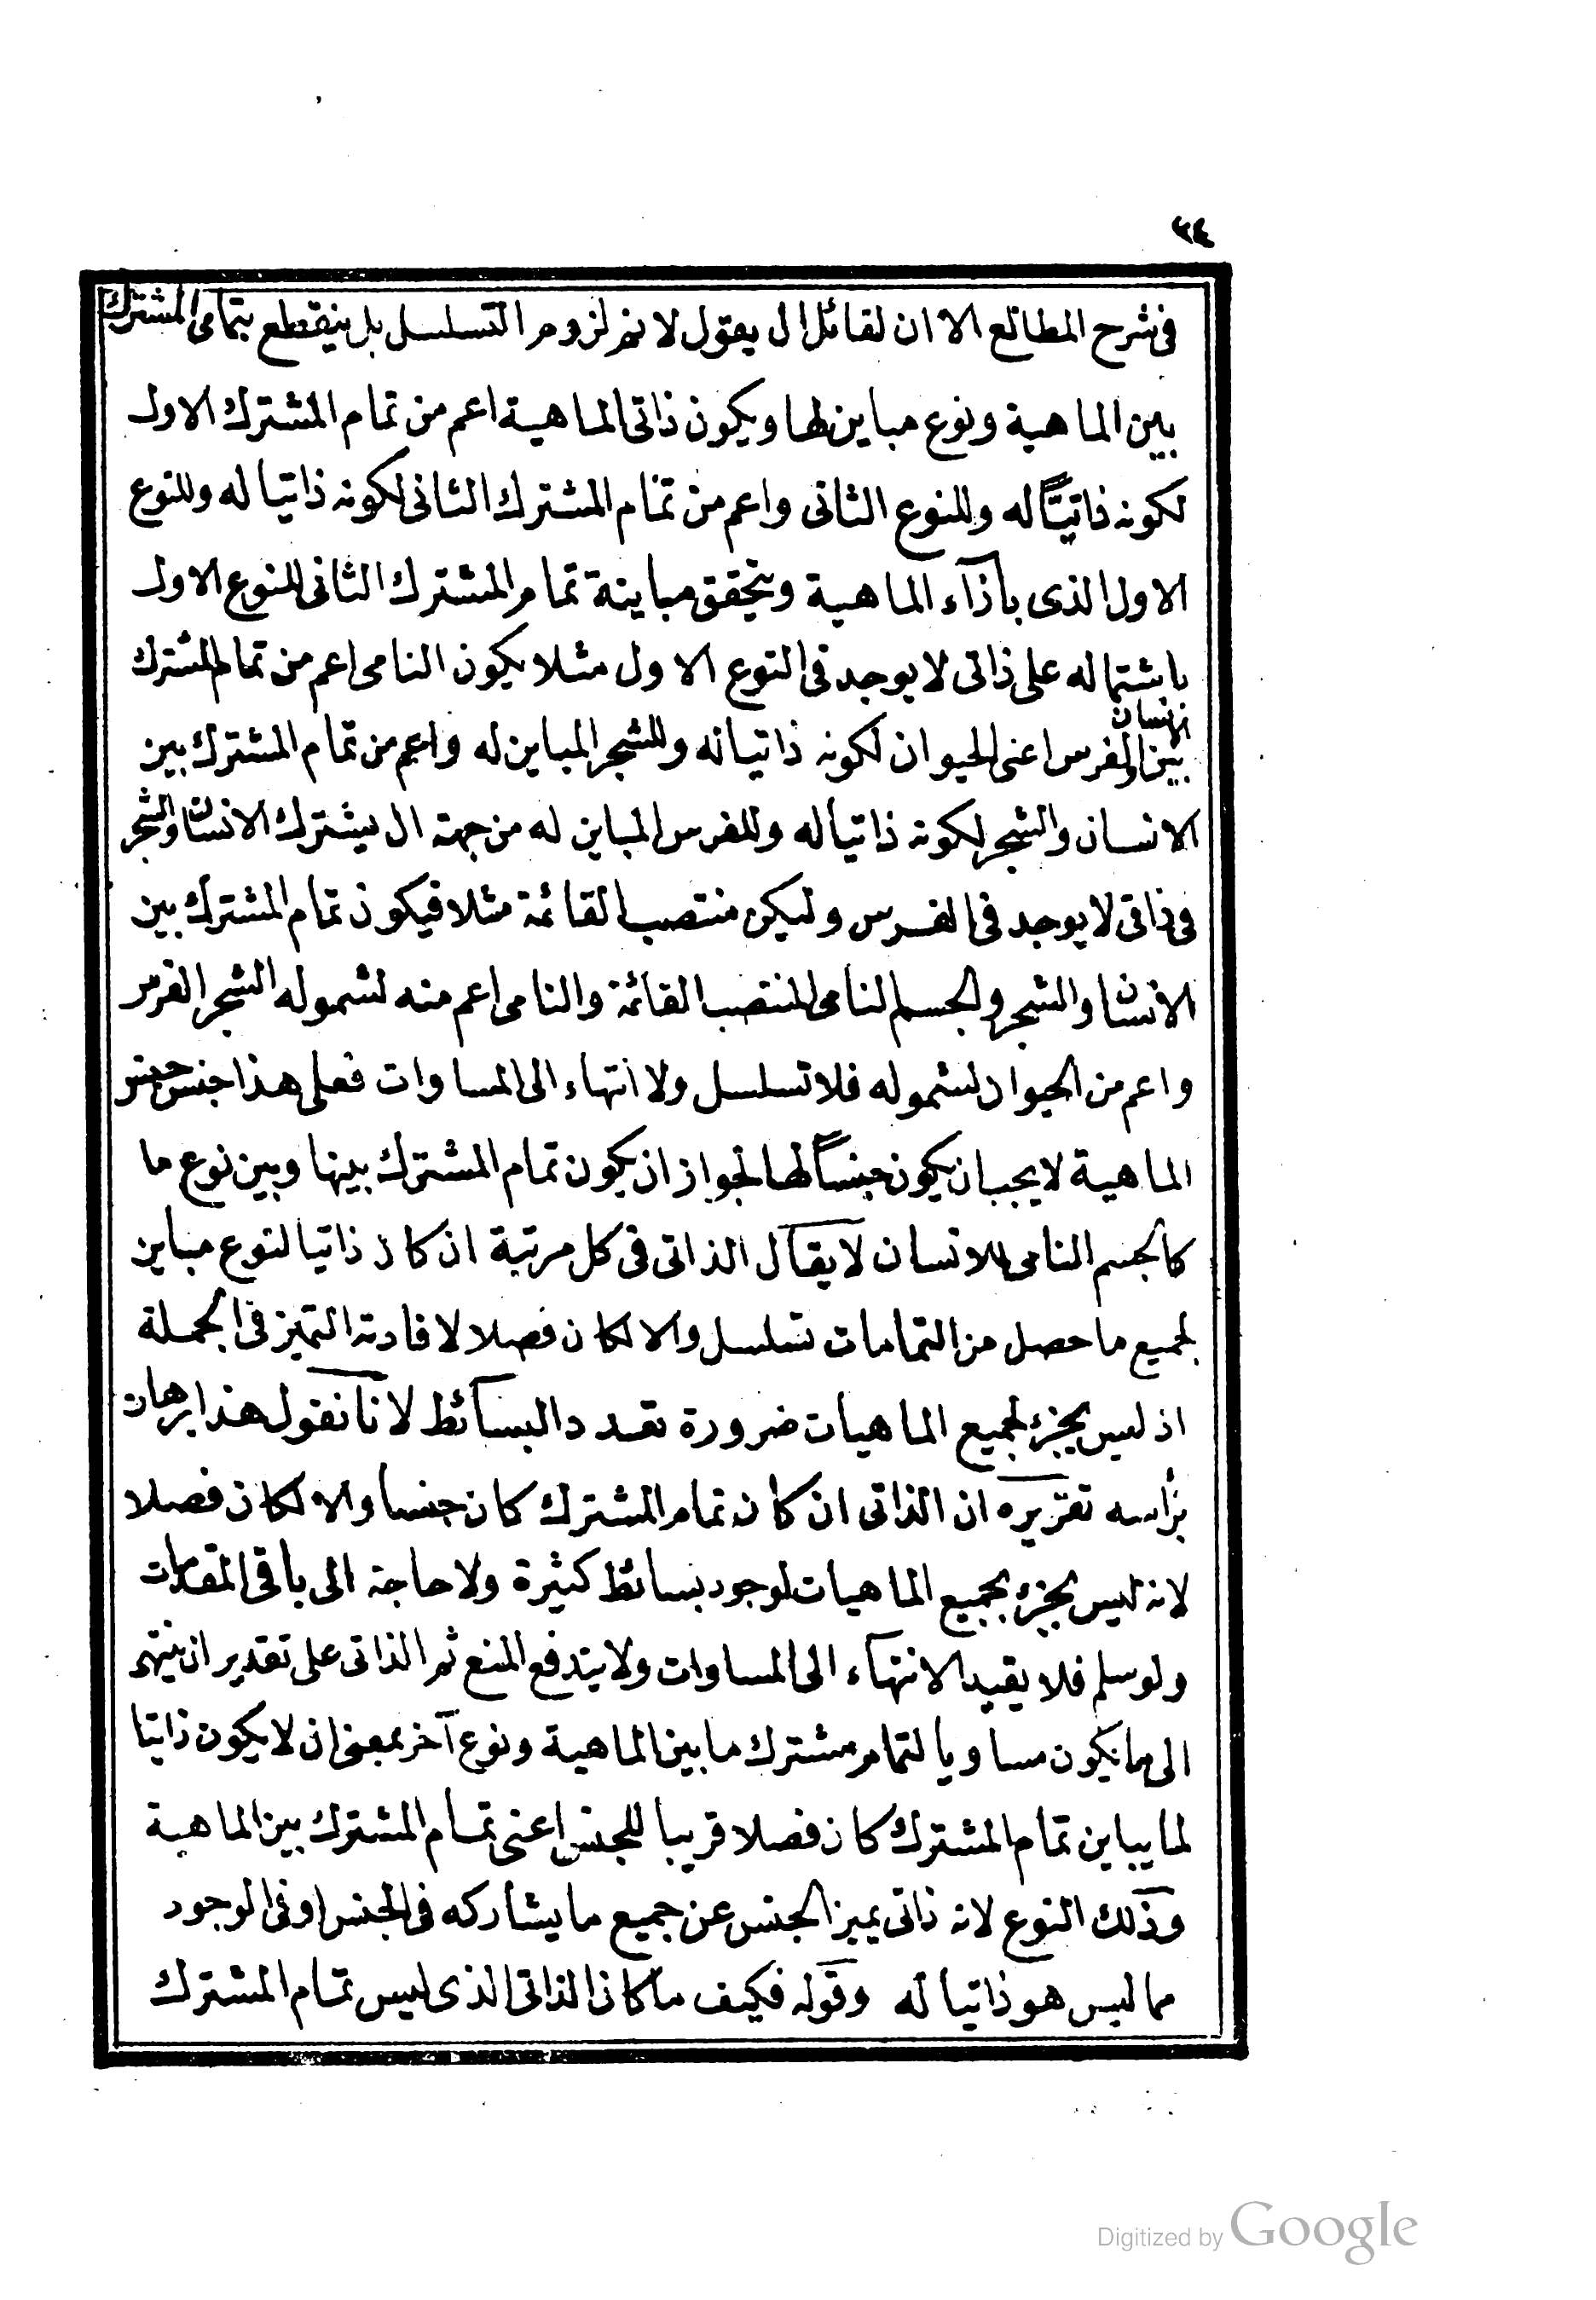 ٣٤
فى شرح المطالع الا ان لقائل ان يقول لا نم لزوم التسلسل بل ينقطع بتمامى المشترك
بين الماهية ونوع مباين لها ويكون ذاتى الماهية اعم من تمام المشترك الاول
لكونه ذاتيًّا له وللنوع الثانى واعم من تمام المشترك الثانى لكونه ذاتيا له وللنوع
الاول الذى بأزآء الماهية ويتحقق مباينة تمام المشترك الثانى للنوع الاول
باشتماله على ذاتى لا يوجد فى النوع الاول مثلا يكون النامى اعم من تمام المشترك
بين الانسان والفرس اعنى الحيوان لكونه ذاتيا له وللشجر المباين له واعم من تمام المشترك بين
الانسان والشجر لكونه ذاتيا له وللفرس المباين له من جهة ان يشترك الانسان والشجر
فى ذاتى لا يوجد فى الفرس وليكن منتصب القائمة مثلا فيكون تمام المشترك بين
الانسان والشجر والجسم النامى المنتصب القائمة والنامى اعم منه لشموله الشجر الفرس
واعم من الحيوان لشموله فلا تسلسل ولا انتهاء الى المساوات فعلى هذا جنس جنس
الماهية لا يجب ان يكون جنسًا لها لجواز ان يكون تمام المشترك بينها وبين نوع ما
كالجسم النامى للانسان لا يقال الذاتى فى كل مرتبة ان كان ذاتيا لنوع مباين
لجميع ما حصل من التمامات تسلسل والا لكان فصلا لافادته التميز فى الجملة
اذ ليس بجزء لجميع الماهيات ضرورة تعدد البسائط لانا نقول هذا برهان
برأسه تقريره ان الذاتى ان كان تمام المشترك كان جنسا والا لكان فصلا
لانه ليس بجزء بجميع الماهيات لوجود بسائط كثيرة ولا حاجة الى باقى المقدمات
ولو سلم فلا يفيد الانتهآء الى المساوات ولا يندفع المنع ثم الذاتى على تقدير ان ينتهى
الى ما يكون مساويا لتمام مشترك ما بين الماهية ونوع آخر بمعنى ان لا يكون ذاتيا
لما يباين تمام المشترك كان فصلا قريبا للجنس اعنى تمام المشترك بين الماهية
وذلك النوع لانه ذاتى يميز الجنس عن جميع ما يشاركه فى الجنس او فى الوجود
مما ليس هو ذاتيا له وقوله فكيف ما كان الذاتى الذى ليس تمام المشترك
Digitized by Google